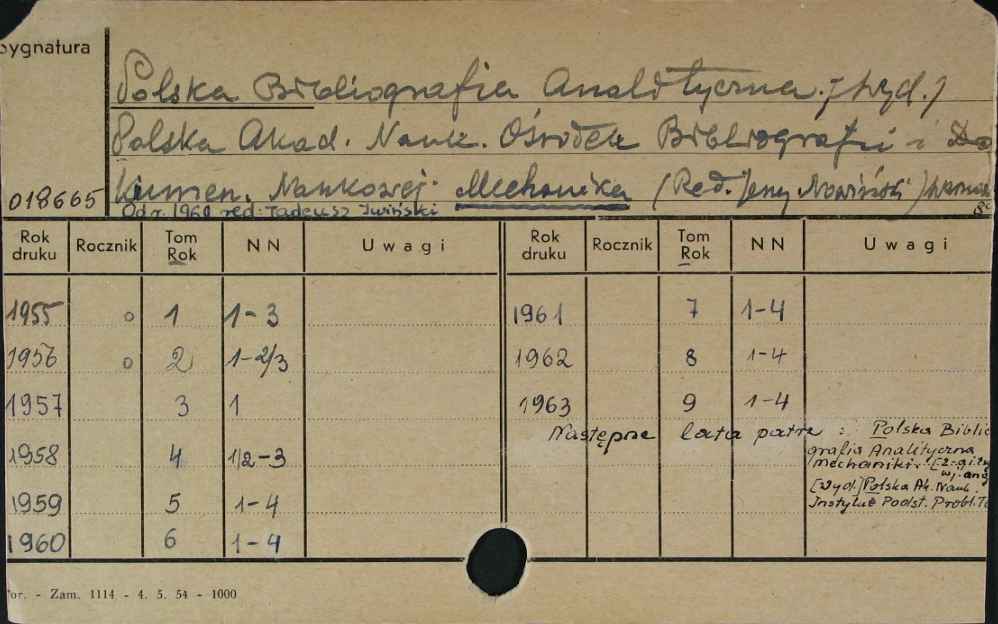 sygnatura
Polska Bibliografia Analityczna. [wyd.]
Polska Akad. Nauk. Ośrodek Bibliografii i Do
018665 kumen. Naukowej. Mechanika (Red. Jerzy Nowiński)
Od r. 1960 red. Tadeusz Iwiński
Rok druku Rocznik Tom Rok NN Uwagi Rok druku Rocznik Tom Rok NN Uwagi
1955 o 1 1-3 1961 7 1-4
1956 o 2 1-2/3 1962 8 1-4
1957 3 1 1963 9 1-4
Następne lata patrz: Polska Biblio
1958 4 1/2-3 grafia Analityczna
mechaniki. [2-gi ty
w j. ang
1959 5 1-4 [wyd.] Polska Ak. Nauk.
Instytut Podst. Probl. Te
1960 6 1-4
or. - Zam. 1114 - 4. 5. 54 - 1000